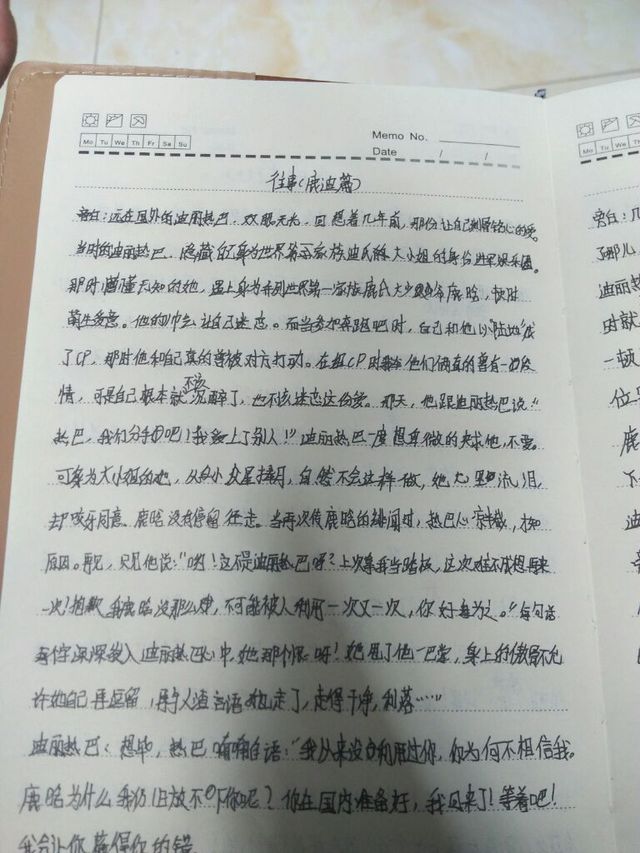 Memo No.
Mo Tu We Th Fr Sa Su
Date / /
往事(鹿迪篇)
旁白:远在国外的迪丽热巴,双眼无长,回想着几年前,那份让自己刻骨铭心的爱。
当时的迪丽热巴,隐藏的身为世界第家族迪氏的大小姐的身份进军娱乐圈。
那时懵懂无知的她,遇上身为来到世界第一家族鹿氏大少爷鹿晗,顿时
萌生爱意。他的帅气让自己迷恋。而当参加奔跑吧时,自己和他以"陆地"成
了CP,那时他和自己真的曾被对方打动。在组CP时他们俩真的曾有一段
情,可是自己根本就不该沉醉了,也不该迷恋这份爱。那天,他跟迪丽热巴说"
热巴,我们分手吧!我爱上了别人!"迪丽热巴一度想卑微的来求他,不要。
可身为大小姐的她,从小众星捧月,自然不会这样做,她心里流泪,
去咬牙同意。鹿晗没有停留径走。当再次传鹿晗的绯闻时,热巴心凉截,探知
原因。再见,只见他说:"哟!这不是迪丽热巴呀?上次拿我当踏板,这次难不成想再来
一次?抱歉我鹿晗没那么傻,不可能被人利用一次又一次,你好自为之。"每句话
每字深深敲入迪丽热巴心中,她那个恨呀!她甩了他一巴掌,身上的傲骨不允
许她自己再逗留,走了,走得干净,利落……
迪丽热巴:想毕,热巴喃喃自语:"我从来没有利用过你,你为何不相信我。
鹿晗为什么我仍旧放不下你呢?你在国内准备好,我回来了!等着吧!
我会让你懂得你的错
旁白:几
了那儿,
迪丽热
时就
一顿
位
鹿
下